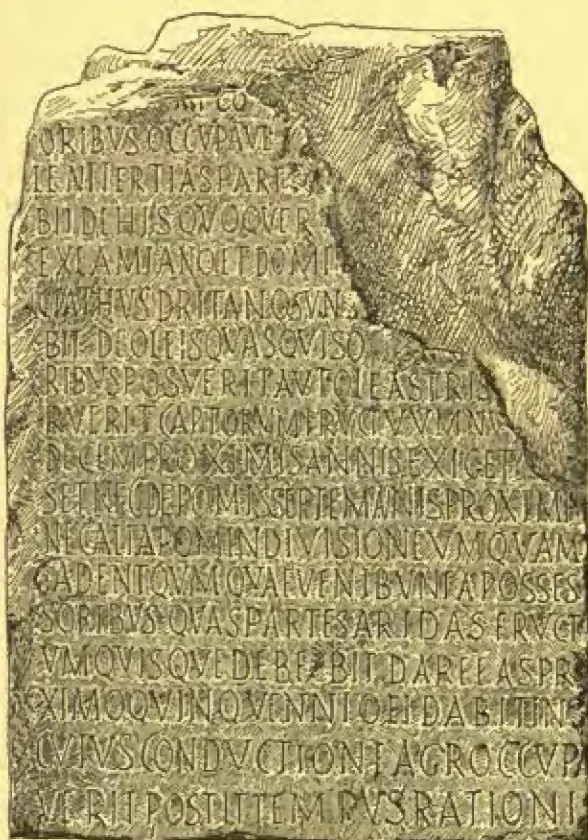 CO
ORIBVS OCCVPAVE
TERTIAS PARTE
BIT DE HIIS QVOQVE R
EX LAMIANO ET DOMI
CTATHVS DRITANO SVNT
BIT DE OLEIS QVAS QVISQ
RIBVS POSVERIT AVT OLEASTRIS
RVERIT CAPTORVM FRVCTVVM NV
DECEM PROXIMIS ANNIS EXIGET
SET NEC DE POMIS SEPTEM ANIS PROXIMI
NEC ALIA POM IN DIVISIONE VMQVAM
CADENT QVM QVAE VENIBVNT A POSSES
SORIBVS QVAS PARTES ARIDAS FRVCT
VM QVISQVE DEBEBIT DARE EAS PR
XIMO QVINQVENNIO EI DABIT IN
CVIVS CONDVCTIONE AGR OCCVPA
VERIT POST IT TEMPVS RATIONI